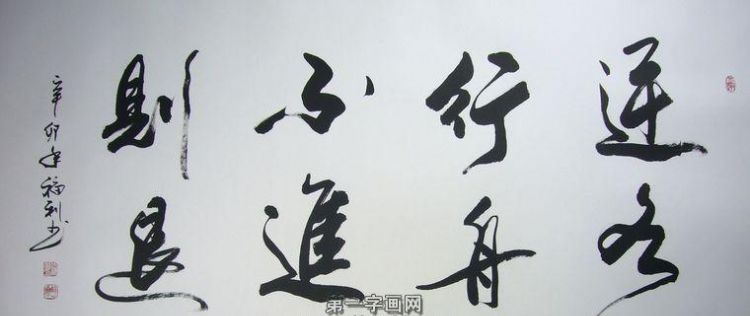 逆水
行舟
不進
則退
辛卯年福利书
第一字画网